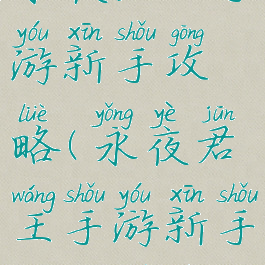 yóu xīn shǒu gōng
游新手攻
lüè yǒng yè jūn
略(永夜君
wáng shǒu yóu xīn shǒu
王手游新手